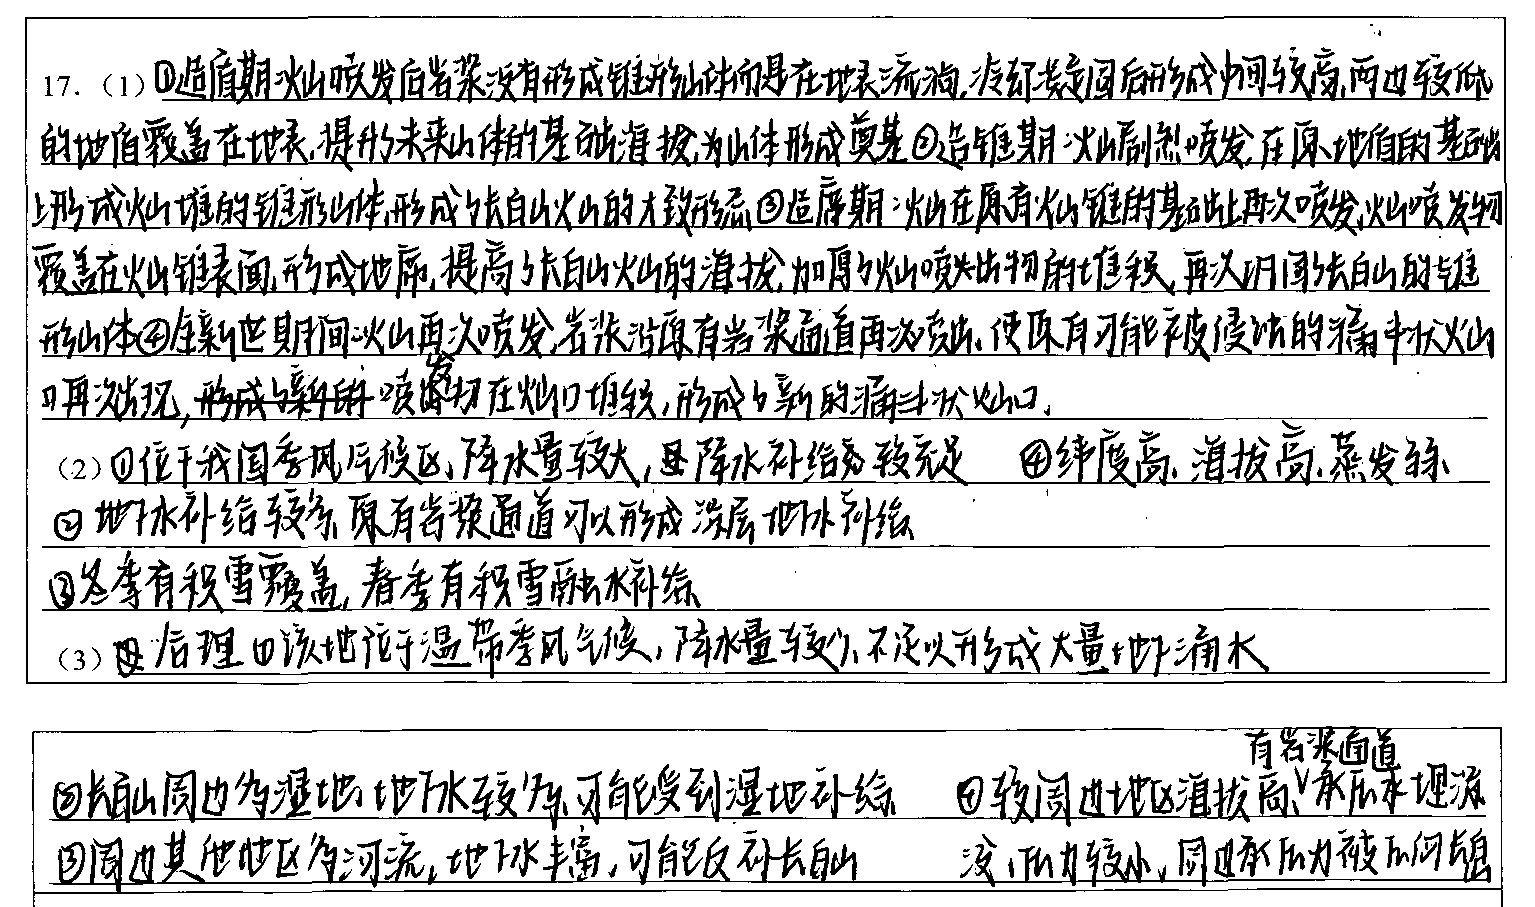 17.（1）①造盾期火山喷发后岩浆没有形成锥形山体而是在地表流淌，冷却凝固后形成中间较高，两边较低
的地盾覆盖在地表，提升了未来山体的基础海拔，为山体形成奠基②造锥期火山剧烈喷发，在原地盾的基础
上形成火山堆的锥形山体，形成了长白山火山的大致形态③造席期火山在原有火山锥的基础上再次喷发，火山喷发物
覆盖在火山锥表面，形成地席，提高了长白山火山的海拔，加厚了火山喷出物的堆积，再次巩固长白山的锥
形山体④全新世期间火山再次喷发，岩浆沿原有岩浆通道再次喷出，使原有可能被侵蚀的漏斗状火山
口再次出现，喷发物在火山口堆积，形成了新的漏斗状火山口。
（2）①位于我国季风气候区，降水量较大，降水补给较充足 ④纬度高、海拔高、蒸发弱、
②地下水补给较多，原有岩浆通道可以形成深层地下水补给
③冬季有积雪覆盖，春季有积雪融水补给
（3）合理①该地位于温带季风气候，降水量较少，不足以形成大量地下涌水
有岩浆通道
②长白山周边为湿地，地下水较多，可能受到湿地补给 ④较周边地区海拔高、承压水埋深
③周边其他地区多河流，地下水丰富，可能反补长白山 浅，压力较小，周边承压力被压向长白